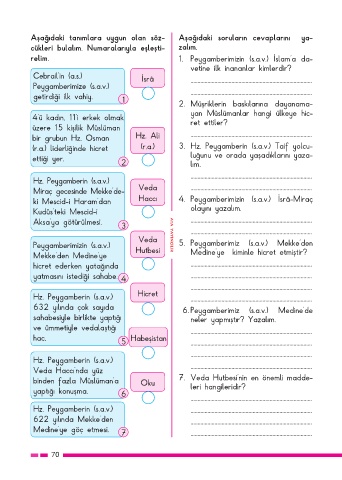 Aşağıdaki tanımlara uygun olan söz-
cükleri bulalım. Numaralarıyla eşleşti-
relim.
Cebrail'in (a.s.)
Peygamberimize (s.a.v.)
getirdiği ilk vahiy.
1
4'ü kadın, 11'i erkek olmak
üzere 15 kişilik Müslüman
bir grubun Hz. Osman
(r.a.) liderliğinde hicret
ettiği yer.
2
Hz. Peygamberin (s.a.v.)
Miraç gecesinde Mekke'de-
ki Mescid-i Haram'dan
Kudüs'teki Mescid-i
Aksa'ya götürülmesi.
3
Peygamberimizin (s.a.v.)
Mekke'den Medine'ye
hicret ederken yatağında
yatmasını istediği sahabe.
4
Hz. Peygamberin (s.a.v.)
632 yılında çok sayıda
sahabesiyle birlikte yaptığı
ve ümmetiyle vedalaştığı
hac.
5
Hz. Peygamberin (s.a.v.)
Veda Haccı'nda yüz
binden fazla Müslüman'a
yaptığı konuşma.
6
Hz. Peygamberin (s.a.v.)
622 yılında Mekke'den
Medine'ye göç etmesi.
7
İsrâ
Hz. Ali
(r.a.)
Veda
Haccı
Veda
Hutbesi
Hicret
Habeşistan
Oku
Aşağıdaki soruların cevaplarını ya-
zalım.
1. Peygamberimizin (s.a.v.) İslam'a da-
vetine ilk inananlar kimlerdir?
2. Müşriklerin baskılarına dayanama-
yan Müslümanlar hangi ülkeye hic-
ret ettiler?
3. Hz. Peygamberin (s.a.v.) Taif yolcu-
luğunu ve orada yaşadıklarını yaza-
lım.
4. Peygamberimizin (s.a.v.) İsrâ-Miraç
olayını yazalım.
5. Peygamberimiz (s.a.v.) Mekke'den
Medine'ye kiminle hicret etmiştir?
6. Peygamberimiz (s.a.v.) Medine'de
neler yapmıştır? Yazalım.
7. Veda Hutbesi'nin en önemli madde-
leri hangileridir?
70